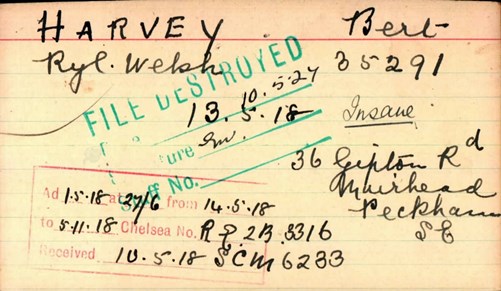 HARVEY Bert
Ryl. Welsh 35291
FILE DESTROYED
10.5.27
13.5.18 Insane
36 Gipton Rd
Muirhead
Peckham
SE
No.
Ad 1.5.18 at 27/6 from 14.5.18
to 5.11.18 Chelsea No. R P. 2B 3316
Received 10.5.18 SCM 6233